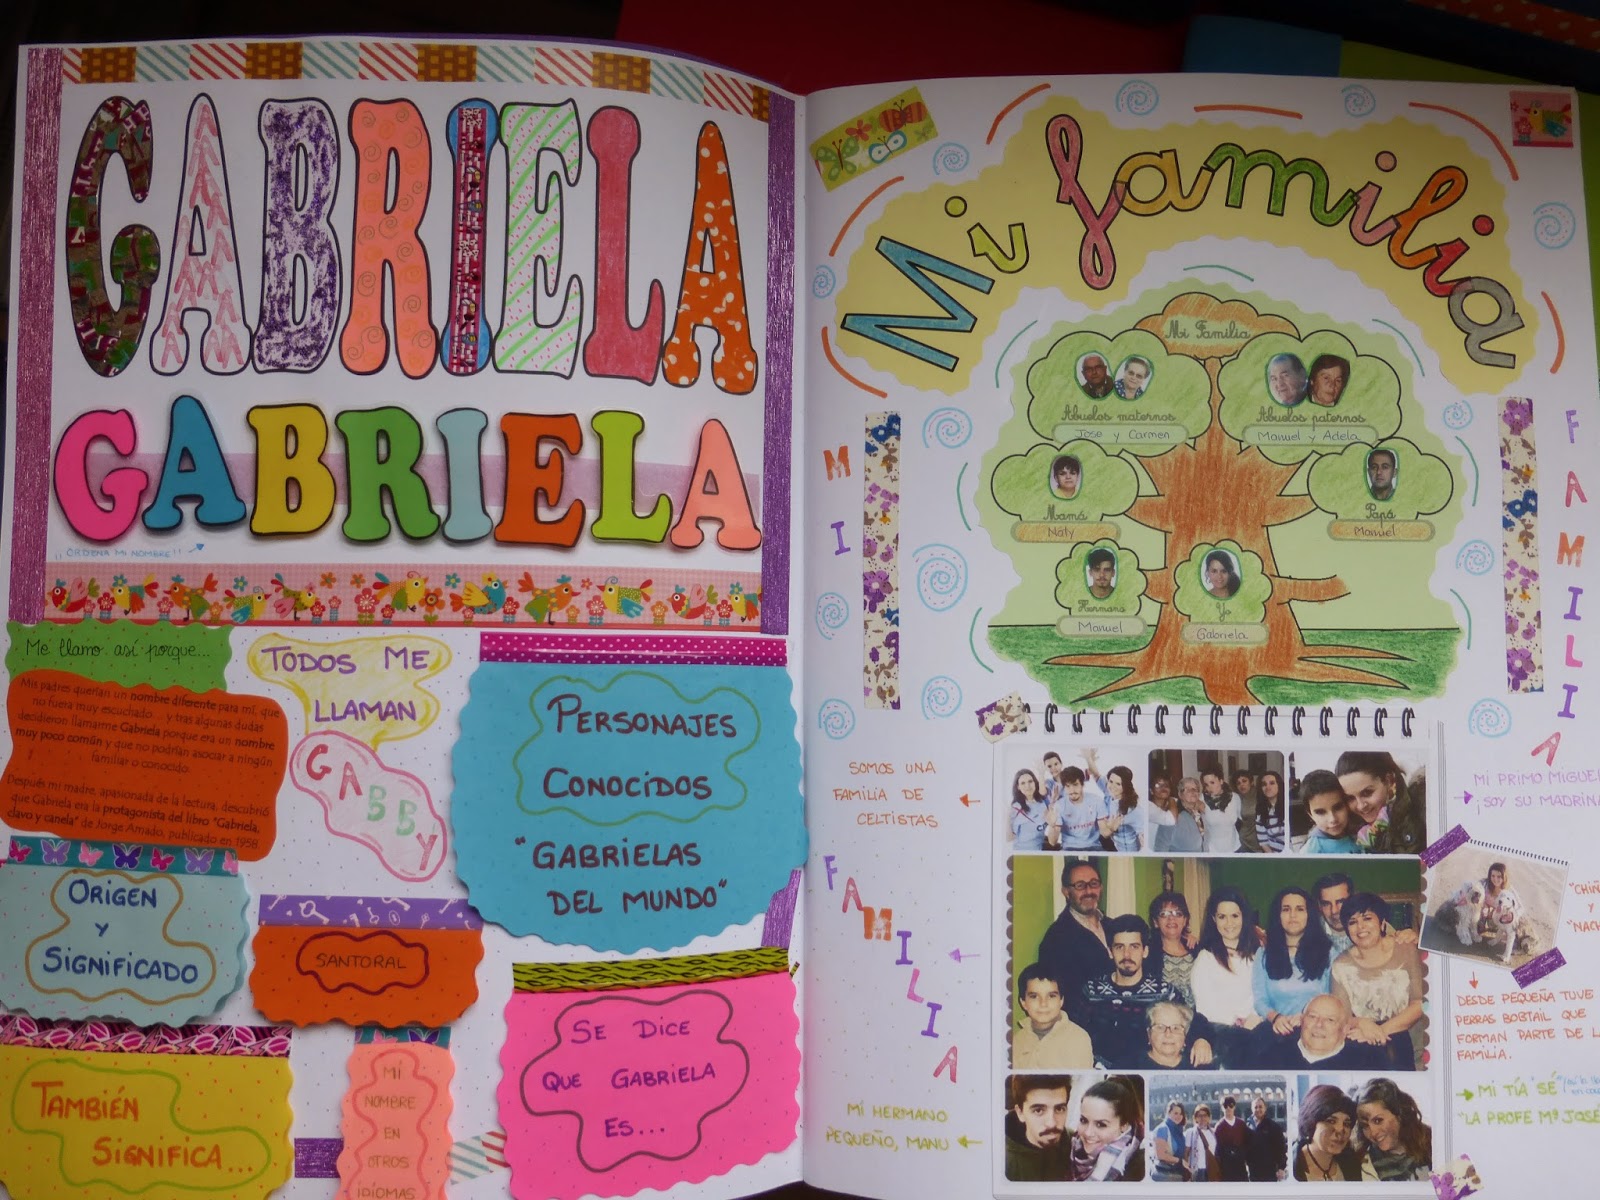 GABRIELA
GABRIELA
¡¡ ORDENA MI NOMBRE!!
Me llamo así porque...
Mis padres querían un nombre diferente para mí, que
no fuera muy escuchado... y tras algunas dudas
decidieron llamarme Gabriela porque era un nombre
muy poco común y que no podrían asociar a ningún
familiar o conocido.
Después mi madre, apasionada de la lectura, descubrió
que Gabriela era la protagonista del libro "Gabriela,
clavo y canela" de Jorge Amado, publicado en 1958.
TODOS ME
LLAMAN
GABBY
PERSONAJES
CONOCIDOS
"GABRIELAS
DEL MUNDO"
ORIGEN
Y
SIGNIFICADO
SANTORAL
TAMBIÉN
SIGNIFICA...
MI
NOMBRE
EN
OTROS
IDIOMAS
SE DICE
QUE GABRIELA
ES...
Mi familia
Mi Familia
Abuelos maternos
Jose y Carmen
Abuelos paternos
Manuel y Adela
Mamá
Naty
Papá
Manuel
Hermano
Manuel
Yo
Gabriela
MI
FAMILIA
SOMOS UNA
FAMILIA DE
CELTISTAS
FAMILIA
MI HERMANO
PEQUEÑO, MANU
MI PRIMO MIGUEL
¡SOY SU MADRINA
"CHIÑ
Y
"NACH
DESDE PEQUEÑA TUVE
PERRAS BOBTAIL QUE
FORMAN PARTE DE L
FAMILIA.
MI TÍA "SÉ"
"LA PROFE Mª JOSÉ